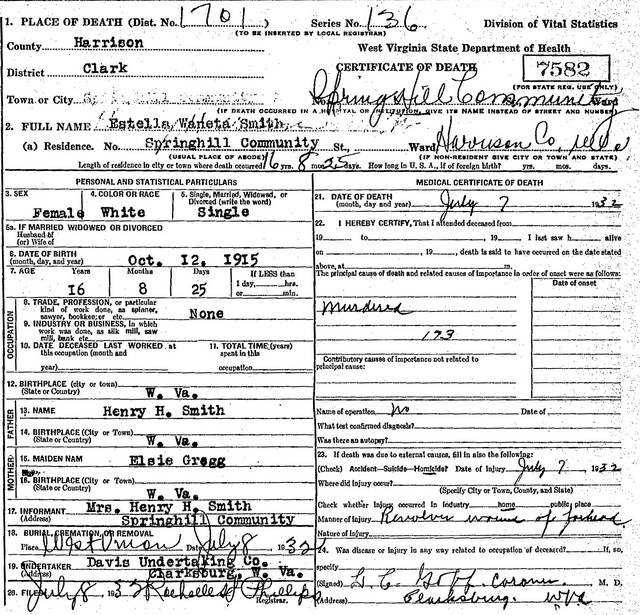 1. PLACE OF DEATH (Dist. No. 1701) Series No. 136 Division of Vital Statistics
(TO BE INSERTED BY LOCAL REGISTRAR)
County Harrison West Virginia State Department of Health
District Clark CERTIFICATE OF DEATH 7582
(FOR STATE REG. USE ONLY)
Town or City No. Springhill Community Ward
(IF DEATH OCCURRED IN A HOSPITAL OR INSTITUTION, GIVE ITS NAME INSTEAD OF STREET AND NUMBER)
2. FULL NAME Estella Waneta Smith
(a) Residence. No. Springhill Community St., Ward, Harrison Co,
(USUAL PLACE OF ABODE) (IF NON-RESIDENT GIVE CITY OR TOWN AND STATE)
Length of residence in city or town where death occurred 16 yrs. 8 mos. 25 ds. How long in U. S. A., if of foreign birth? yrs. mos. days.
PERSONAL AND STATISTICAL PARTICULARS
3. SEX Female
4. COLOR OR RACE White
5. Single, Married, Widowed, or Divorced (write the word) Single
5a. IF MARRIED WIDOWED OR DIVORCED
Husband of
(or) Wife of
6. DATE OF BIRTH
(month, day, and year) Oct. 12, 1915
7. AGE Years Months Days If LESS than
1 day, hrs.
16 8 25 or min.
OCCUPATION
8. TRADE, PROFESSION, or particular
kind of work done, as spinner,
sawyer, bookkeeper etc. None
9. INDUSTRY OR BUSINESS, in which
work was done, as silk mill, saw
mill, bank etc.
10. DATE DECEASED LAST WORKED at
this occupation (month and
year)
11. TOTAL TIME (years)
spent in this
occupation
12. BIRTHPLACE (city or town)
(State or Country) W. Va.
FATHER
13. NAME Henry H. Smith
14. BIRTHPLACE (City or Town)
(State or Country) W. Va.
MOTHER
15. MAIDEN NAM Elsie Gregg
16. BIRTHPLACE (City or Town)
(State or Country) W. Va.
17. INFORMANT Mrs. Henry H. Smith
(Address) Springhill Community
18. BURIAL, CREMATION, OR REMOVAL
Place West Union Date July 8 1932
19. UNDERTAKER Davis Undertaking Co.
(Address) Clarksburg, W. Va.
20. FILED July 8 193 Phillips
Registrar.
MEDICAL CERTIFICATE OF DEATH
21. DATE OF DEATH
(month, day, and year) July 7 1932
22. I HEREBY CERTIFY, That I attended deceased from
19 to , 19 I last saw h alive
on , 19 , death is said to have occurred on the date stated
above, at m.
The principal cause of death and related causes of importance in order of onset were as follows:
Date of onset
Murdered
173
Contributory causes of importance not related to
principal cause:
Name of operation No Date of
What test confirmed diagnosis?
Was there an autopsy?
23. If death was due to external causes, fill in also the following:
(Check) Accident—Suicide—Homicide? Date of Injury July 7 1932
Where did injury occur?
(Specify City or Town, County, and State)
Check whether Injury occurred in industry home public place
Manner of Injury Revolver wound of forhead
Nature of injury
24. Was disease or injury in any way related to occupation of deceased? If so,
specify
(Signed) L. C. Goff Coroner M. D.
(Address) Clarksburg W Va